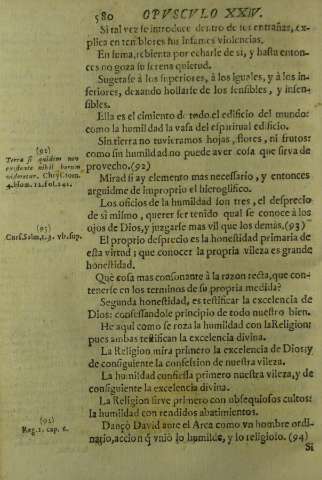 580 OPVSCVLO XXIV.
Si tal vez se introduce dentro de sus entrañas, ex-
plica en temblores sus infames violencias.
En suma, rebienta por echarle de si, y hasta enton-
ces no goza se serena quietud.
Sugetase à los superiores, à los iguales, y à los in-
feriores, dexando hollarse de los sensibles, y insen-
sibles.
Ella es el cimiento de todo el edificio del mundo:
como la humildad la vasa del espiritual edificio.
Sin tierra no tuvieramos hojas, flores, ni frutos:
como sin humildad no puede aver cosa que sirva de
provecho. (92)
(92)
Terra si quidem non
existente nihil horum
nideretur. Chrysostom.
4. hom. 12. fol. 141.
Mirad si ay elemento mas necessario, y entonces
arguidme de improprio el hieroglifico.
Los oficios de la humildad son tres, el desprecio
de si mismo, querer ser tenido qual se conoce à los
ojos de Dios, y juzgarse mas vil que los demàs. (93)
(93)
Curs. Salm. t. 3. vb. sup.
El proprio desprecio es la honestidad primaria de
esta virtud; que conocer la propria vileza es grande
honestidad.
Què cosa mas consonante à la razon recta, que con-
tenerse en los terminos de su propria medida?
Segunda honestidad, es testificar la excelencia de
Dios: confessandole principio de todo nuestro bien.
He aqui como se roza la humildad con la Religion:
pues ambas testifican la excelencia divina.
La Religion mira primero la excelencia de Dios: y
de consiguiente la confession de nuestra vileza.
La humildad confiessa primero nuestra vileza, y de
consiguiente la excelencia divina.
La Religion sirve primero con obsequiosos cultos:
la humildad con rendidos abatimientos.
Dançò David ante el Arca como vn hombre ordi-
nario, accion q̃ vniò lo humilde, y lo religioso. (94)
Reg. 2. cap. 6.
Si